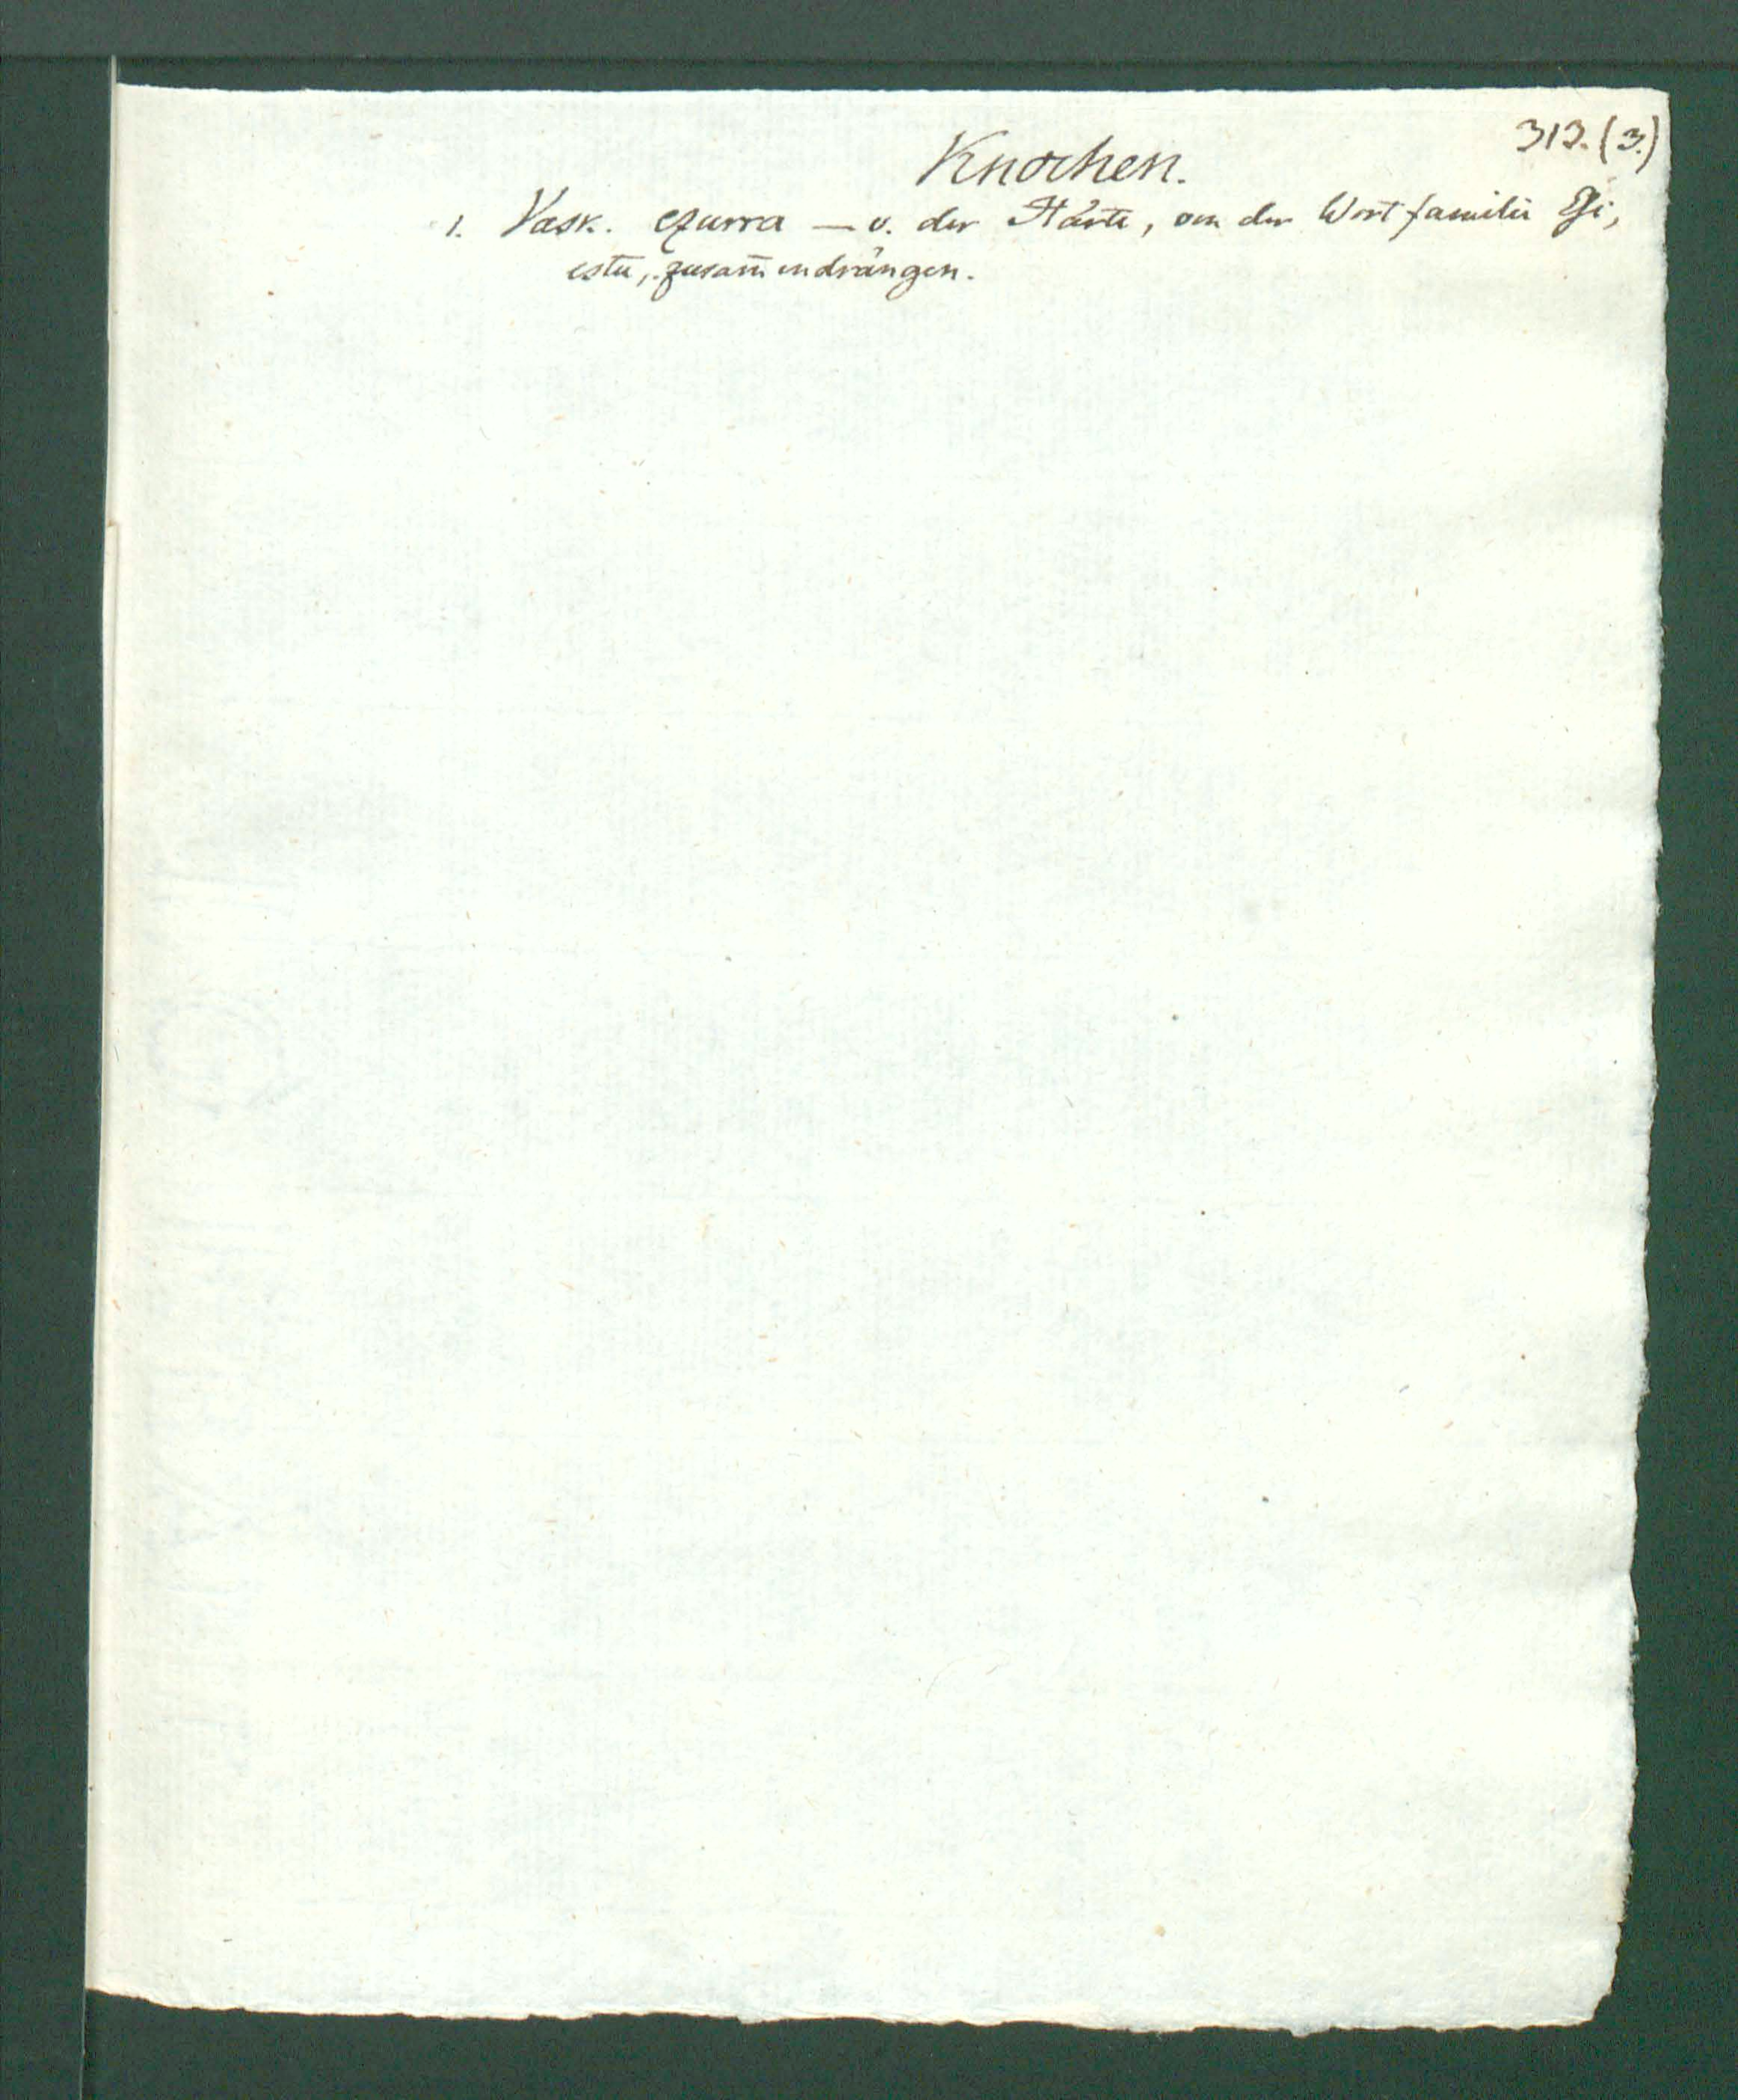 313. (3.)
Knochen.
1. Vask. ezurra — v. der Härte, von der Wortfamilie
estu, zusam̄endrängen.